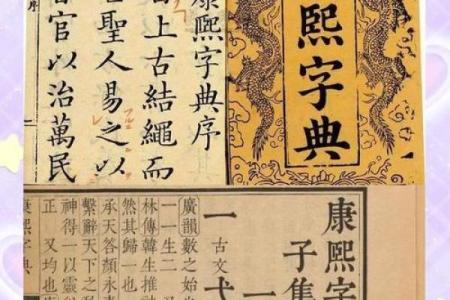 康熙字典序
上古結繩而
聖人易之以
官以治萬民
序
熙字典
康熙字
子集
一
一 古文弌
廣韻數之始也
一一生二
林傳韓生推
然其歸一也
承天答顏永
繫辭天下之
神得一以靈
正 又均也
康熙字典